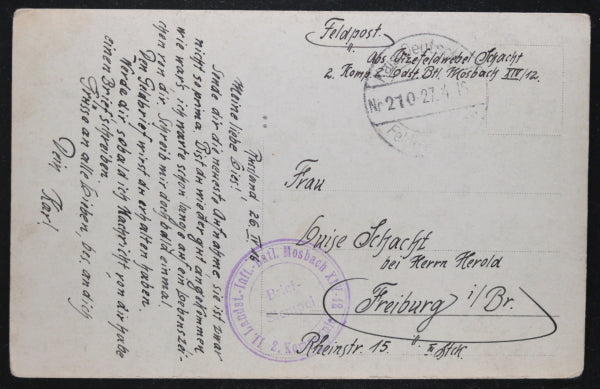 Feldpost.
Abs. Vizefeldwebel Schacht
2. Komp. 2. Ldst. Btl. Mosbach XIV/12.
Nr 210 27.4.
Frau
Luise Schacht
bei Herrn Herold
Freiburg i/Br.
Rheinstr. 15 II Stck.
II. Landst.-Inft.-Batl. Mosbach XIV-12
Brief-
Stempel
2. Komp.
Russland 26. IV.
Meine liebe Lies!
Sende dir die neueste Aufnahme sie ist zwar
nicht so prima. Bist du wieder gut angekommen
wie war's ich warte schon lange auf ein Lebenszei-
chen von dir. Schreib mir doch bald einmal
Den Geldbrief wirst du erhalten haben.
Werde dir sobald ich Nachricht von dir habe
einen Brief schreiben.
Grüsse an alle Lieben, bes. an dich
Dein Karl